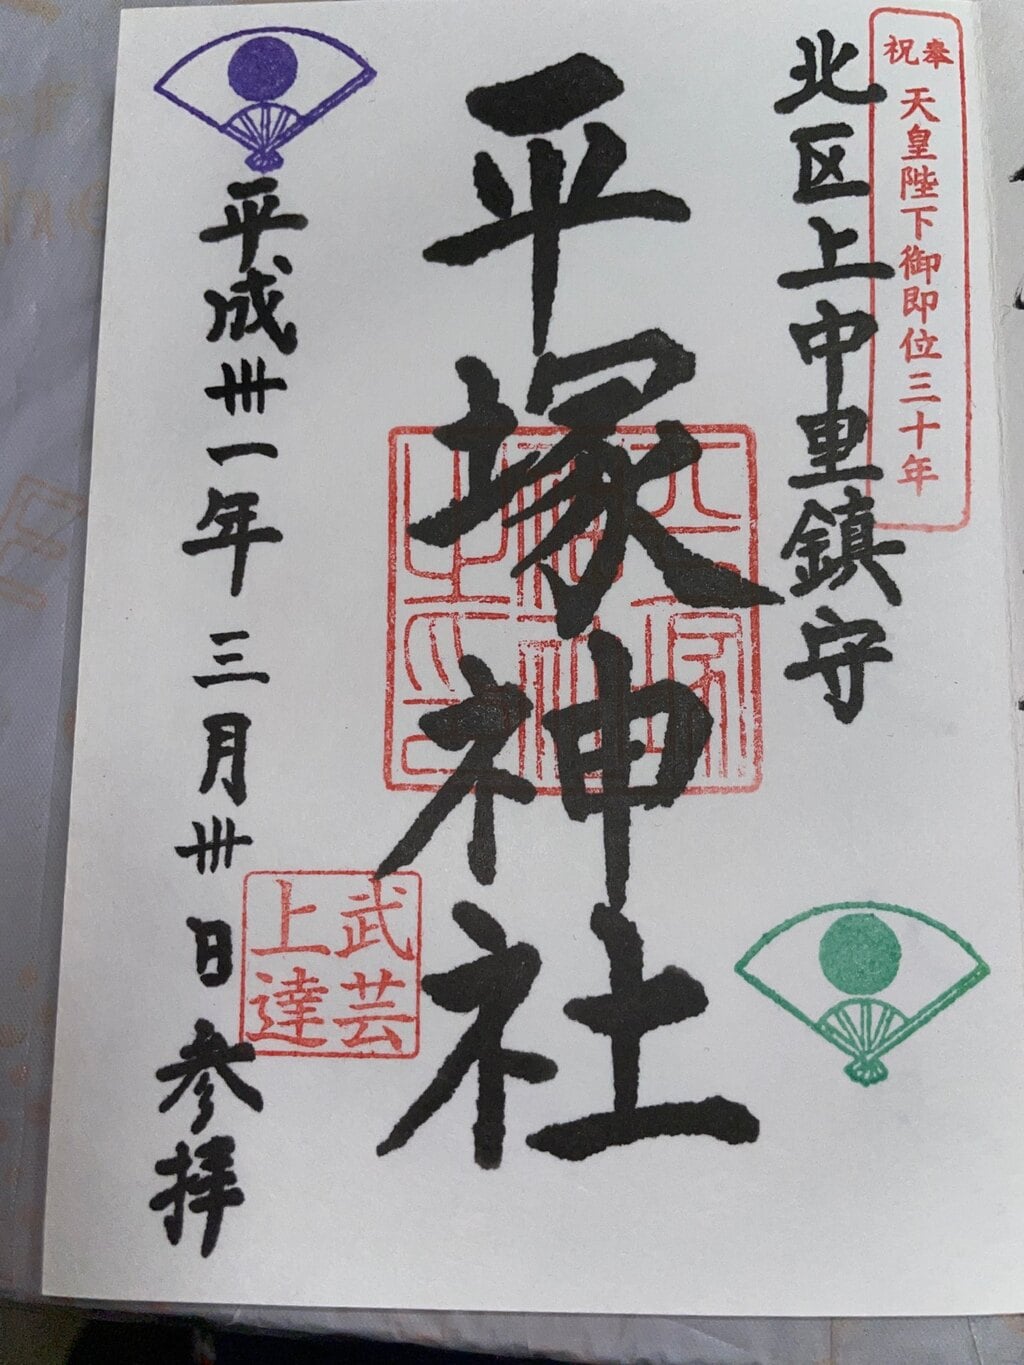 奉祝
天皇陛下御即位三十年
北区上中里鎮守
平塚神社
平塚神社之印
武芸
上達
平成卅一年三月卅日参拝